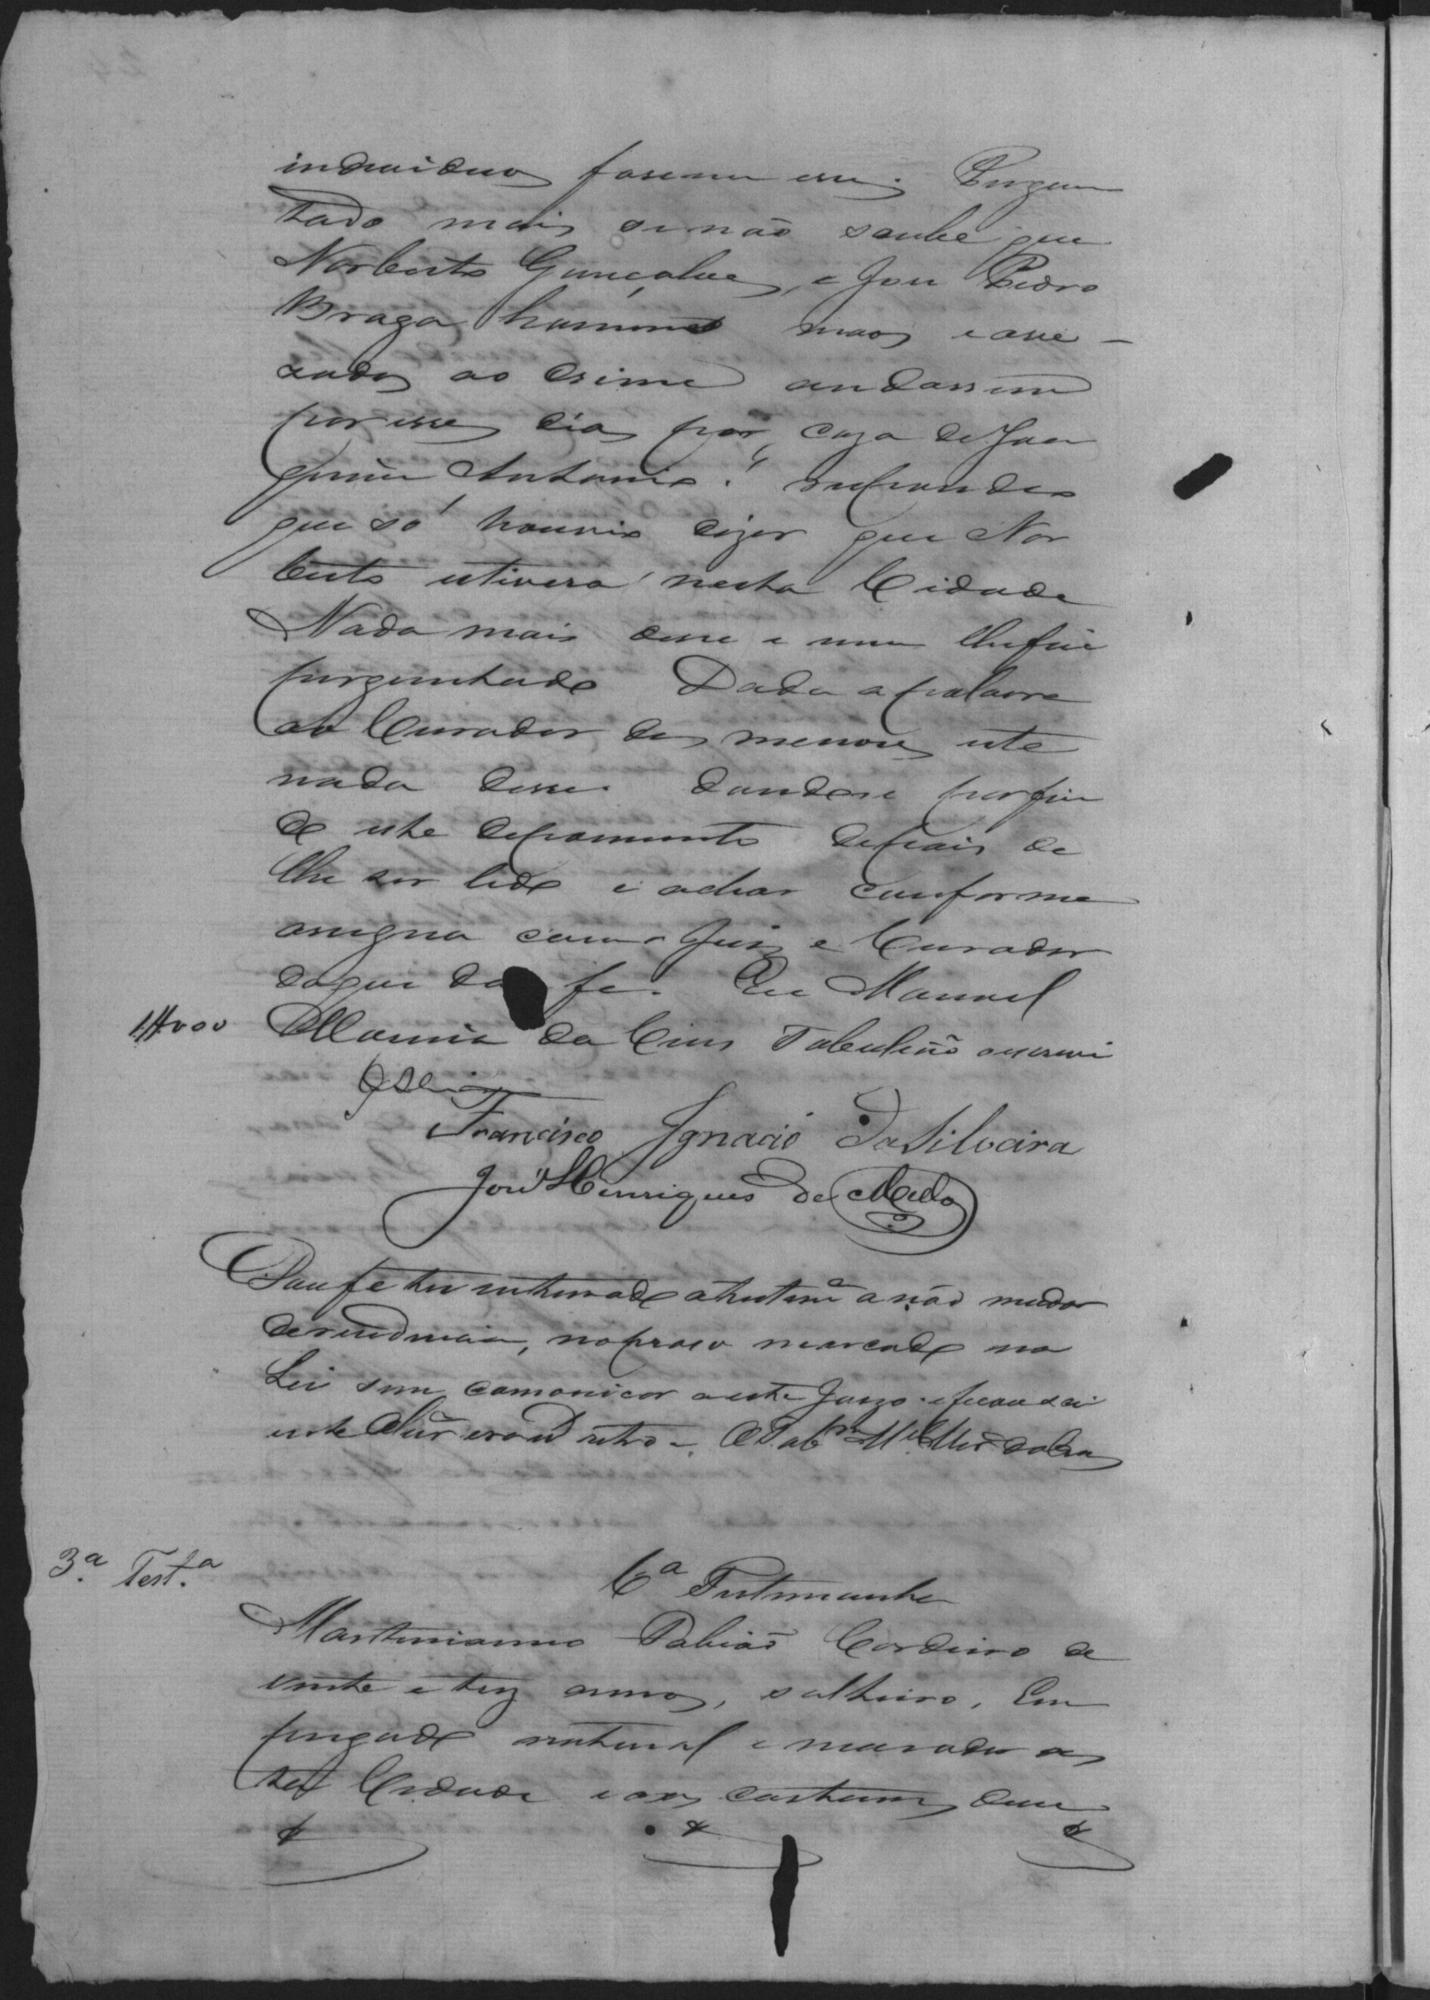 individuos fosem esse. Pergun
tado mais se não soube que
Norberto Gonçalves, e José Pedro
Braga homens maos e ave-
zados ao crime andassem
por esses dias por caza de Joa
quim Antonio? respondeo
que só houvio dizer que Nor
berto estivera nesta Cidade
Nada mais disse e nem lhe foi
perguntado Dada a palavra
ao Curador dos menores este
nada disse. dandose por fin
do este depoimento depois de
lhe ser lido e achar conforme
assigna com o Juiz e Curador
do que dou fé. Eu Manoel
1#000 Maria da Cruz Tabelião o escrevi
Francisco Ignacio Da Silveira
José Henriques de Mello
Dou fé ter intimado a testemª a não mudar
de residencia, no praso marcado na
Lei sem comonicar a este Juizo e ficou sci
ente
3ª Test.ª
6ª Testemunha
Martinianno Fabião Cordeiro de
vinte e trez annos, solteiro, Em
pregado natural e morador nes
ta Cidade e aos custumes disse